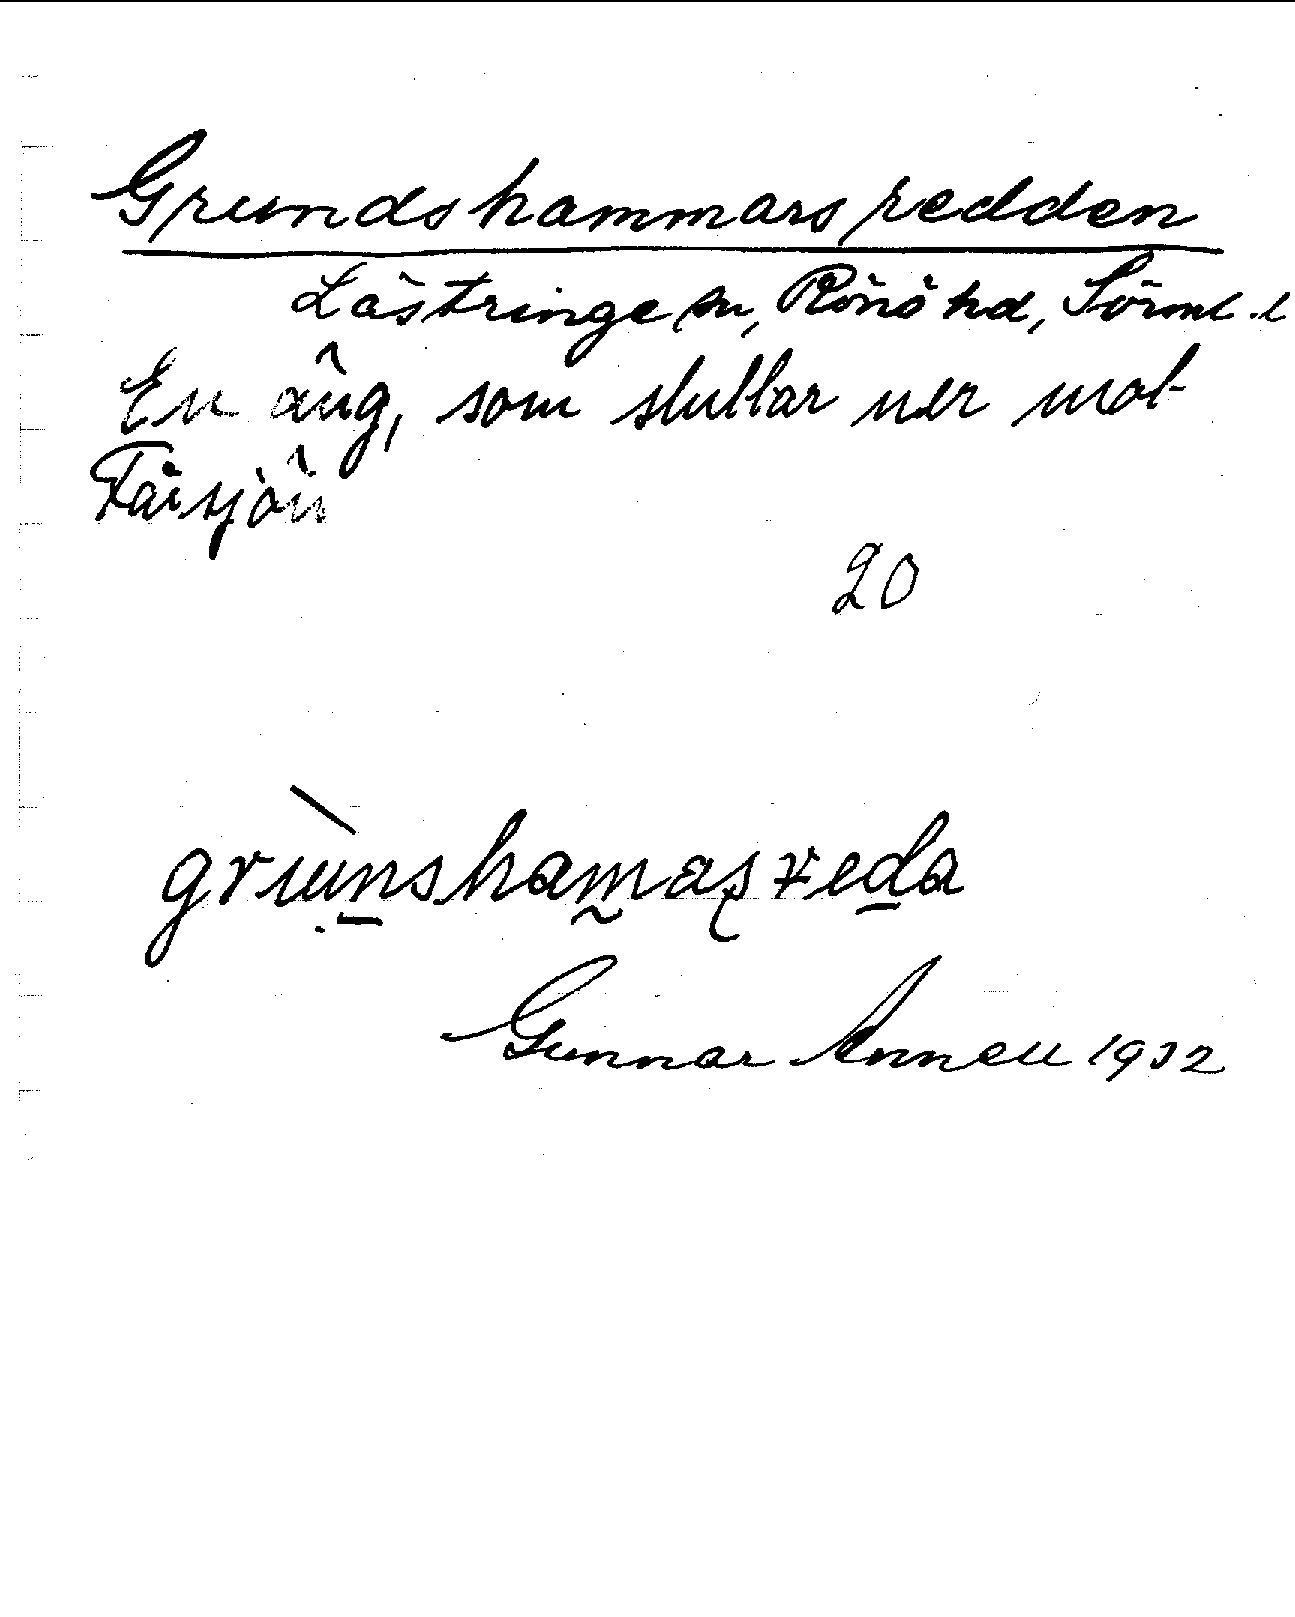 Grundshammarsredden
Lästringe sn, Rönö hd, Sörml. l
En äng, som sluttar ner mot
Fårsjön
20
Gunnar Annell 1932